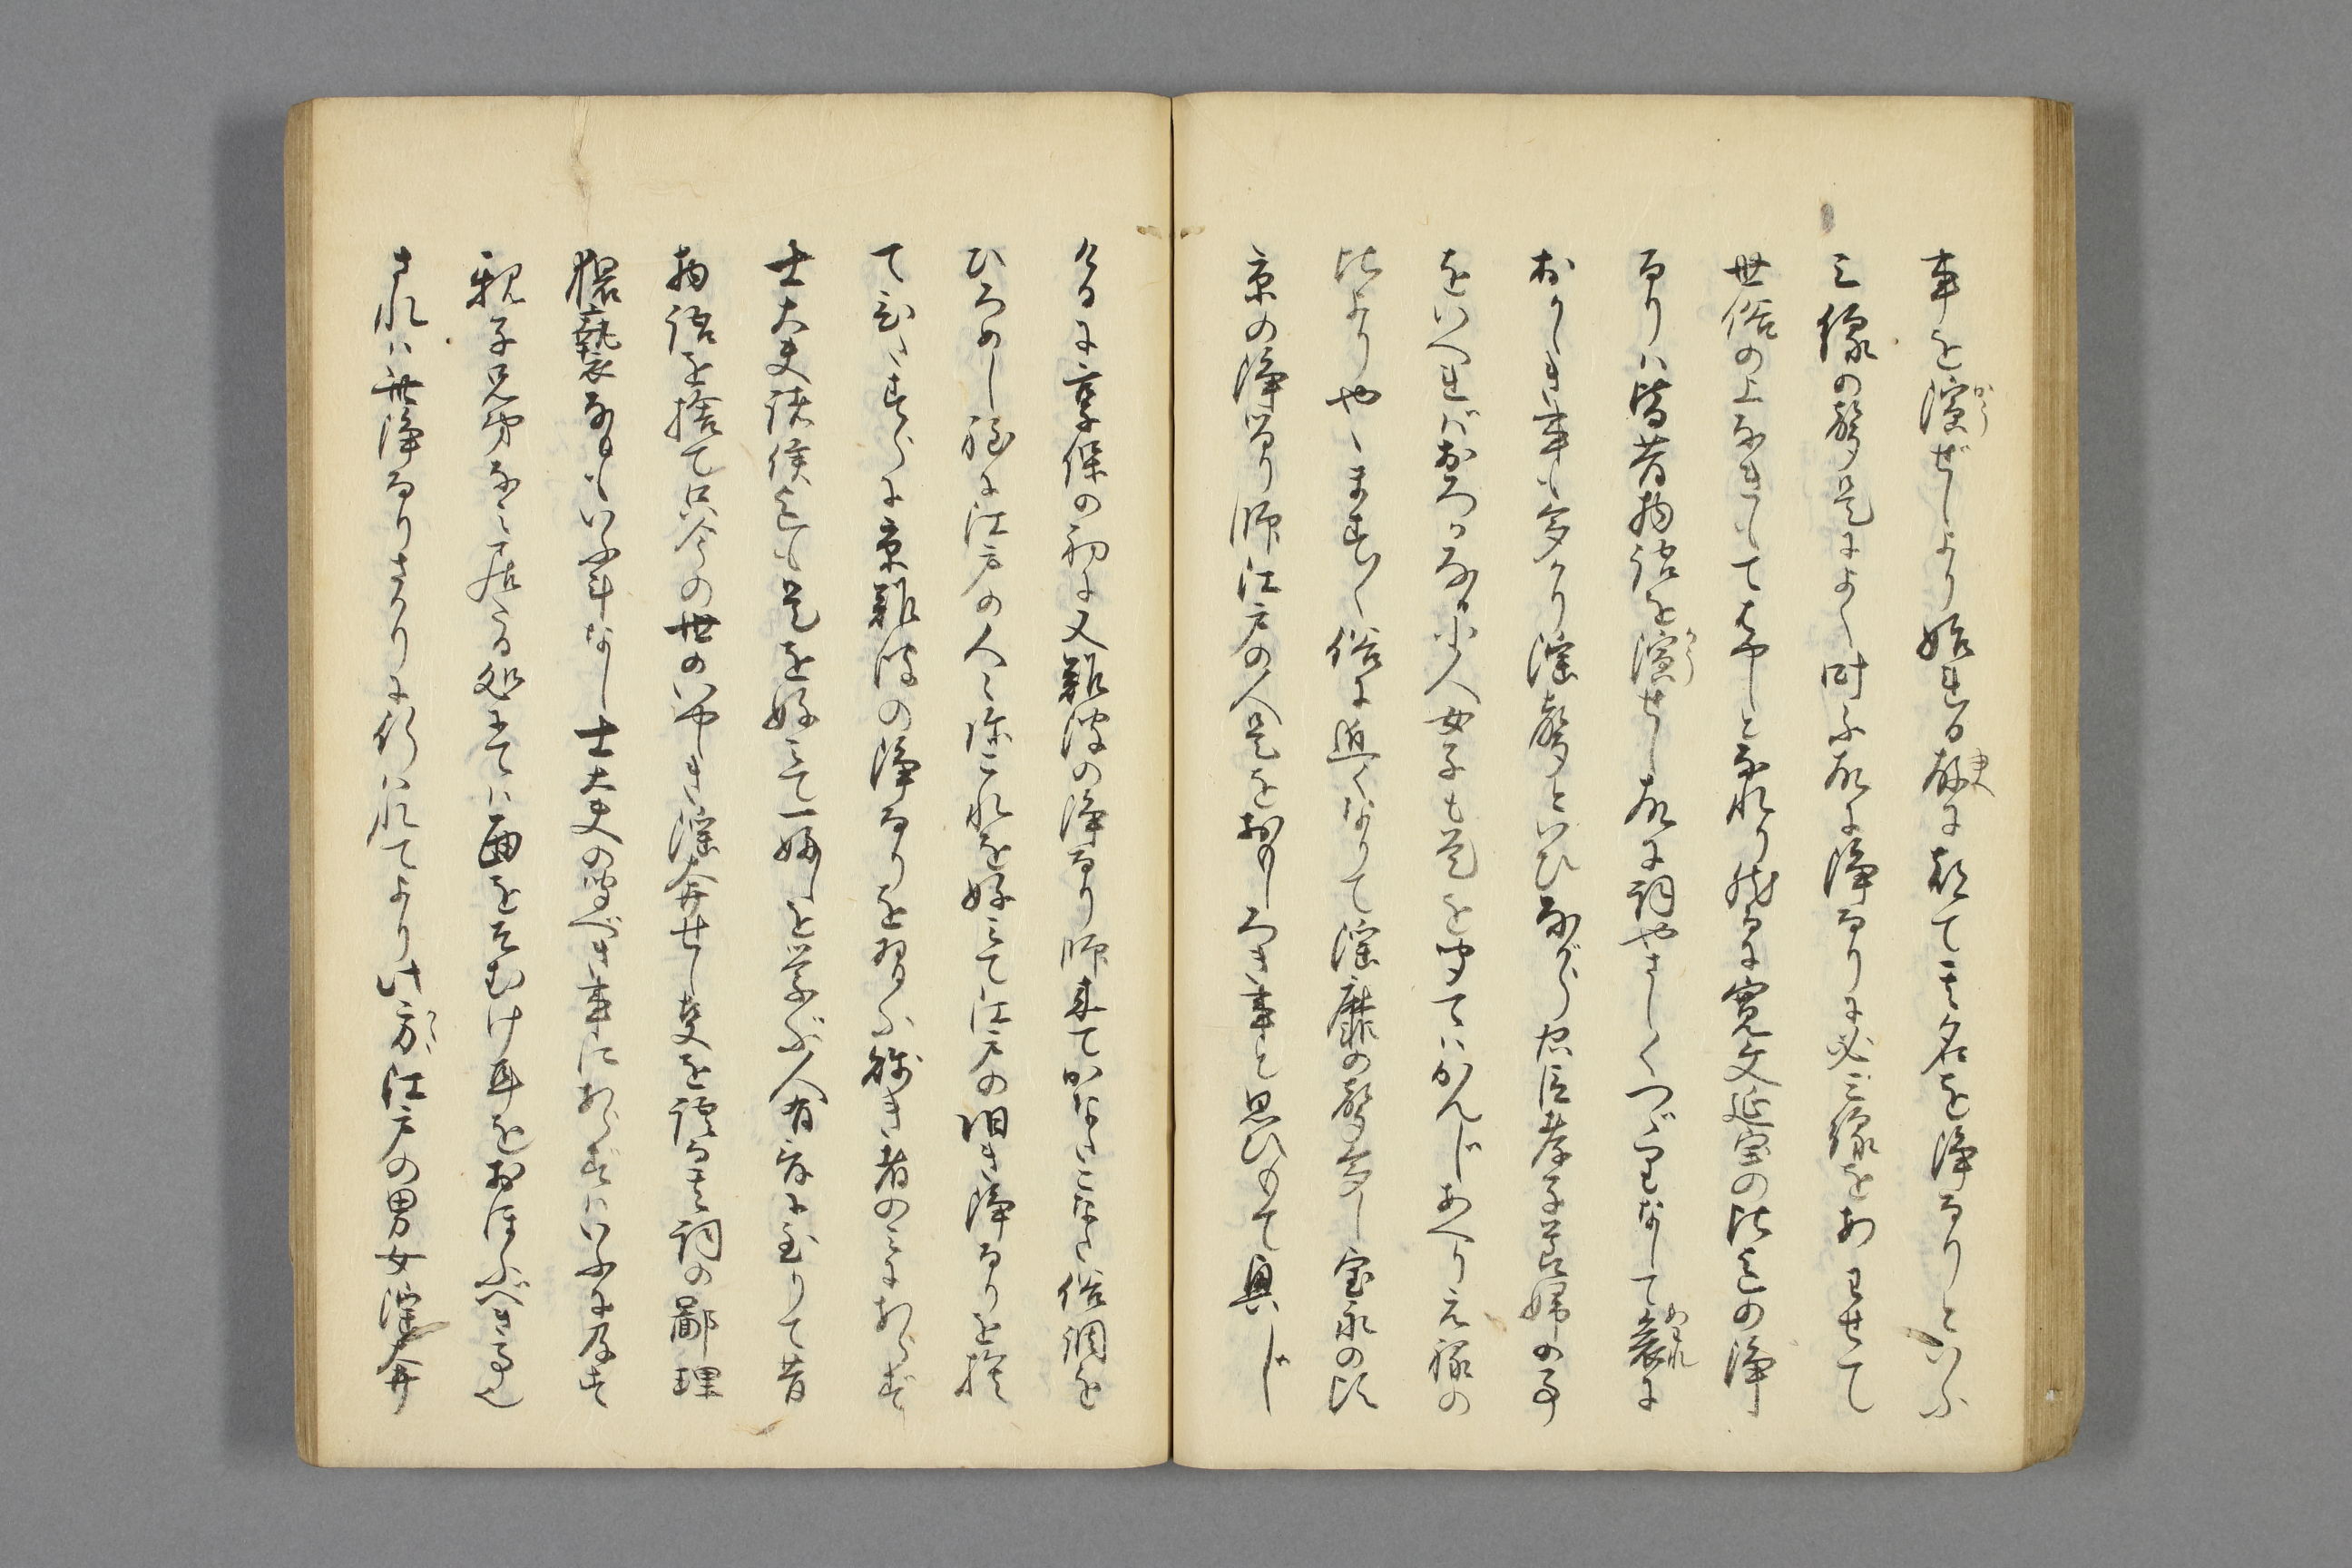 事を演ぜしより始れる故に都て其名を浄るりといふ
三線の声是によく叶ふ故に浄るりに必三線をあわせて
世俗の上なきもてあそびと成れり然るに寛文延宝の比迄の浄
るりは皆昔物語を演せし故に詞やさしくつゞまなして哀に
おかしき事も多かり淫声といひながら忠臣孝子節婦の事
をいへればおろかなる小人女子も是を聞てはかんじあへり元禄の
比よりやゝます〳〵俗に近くなりて淫靡の声多し宝永の比
京の浄るり師江戸の人是をおもしろき事と思ひめで興じ
けるに享保の初に又難波の浄るり師来てかなたこなた俗調を
ひろめし程に江戸の人々弥これを好みて江戸の旧き浄るりを捨
てひたすらに京難波の浄るりを習ふ賎き者のみにあらず
士大夫諸侯迄も是を好みて一ふしを学ぶ人有爰に至りて昔
物語を捨て只今の世のいやしき淫奔せし事を語る其詞の鄙俚
猥褻なる事いふ斗なし士大夫の聞べき事にあらざるはいふに及ず
親子兄弟なみ居る処にては面をそむけ耳をおほふべき事也
されは此浄るりさかりに行はれてより此方江戸の男女淫奔